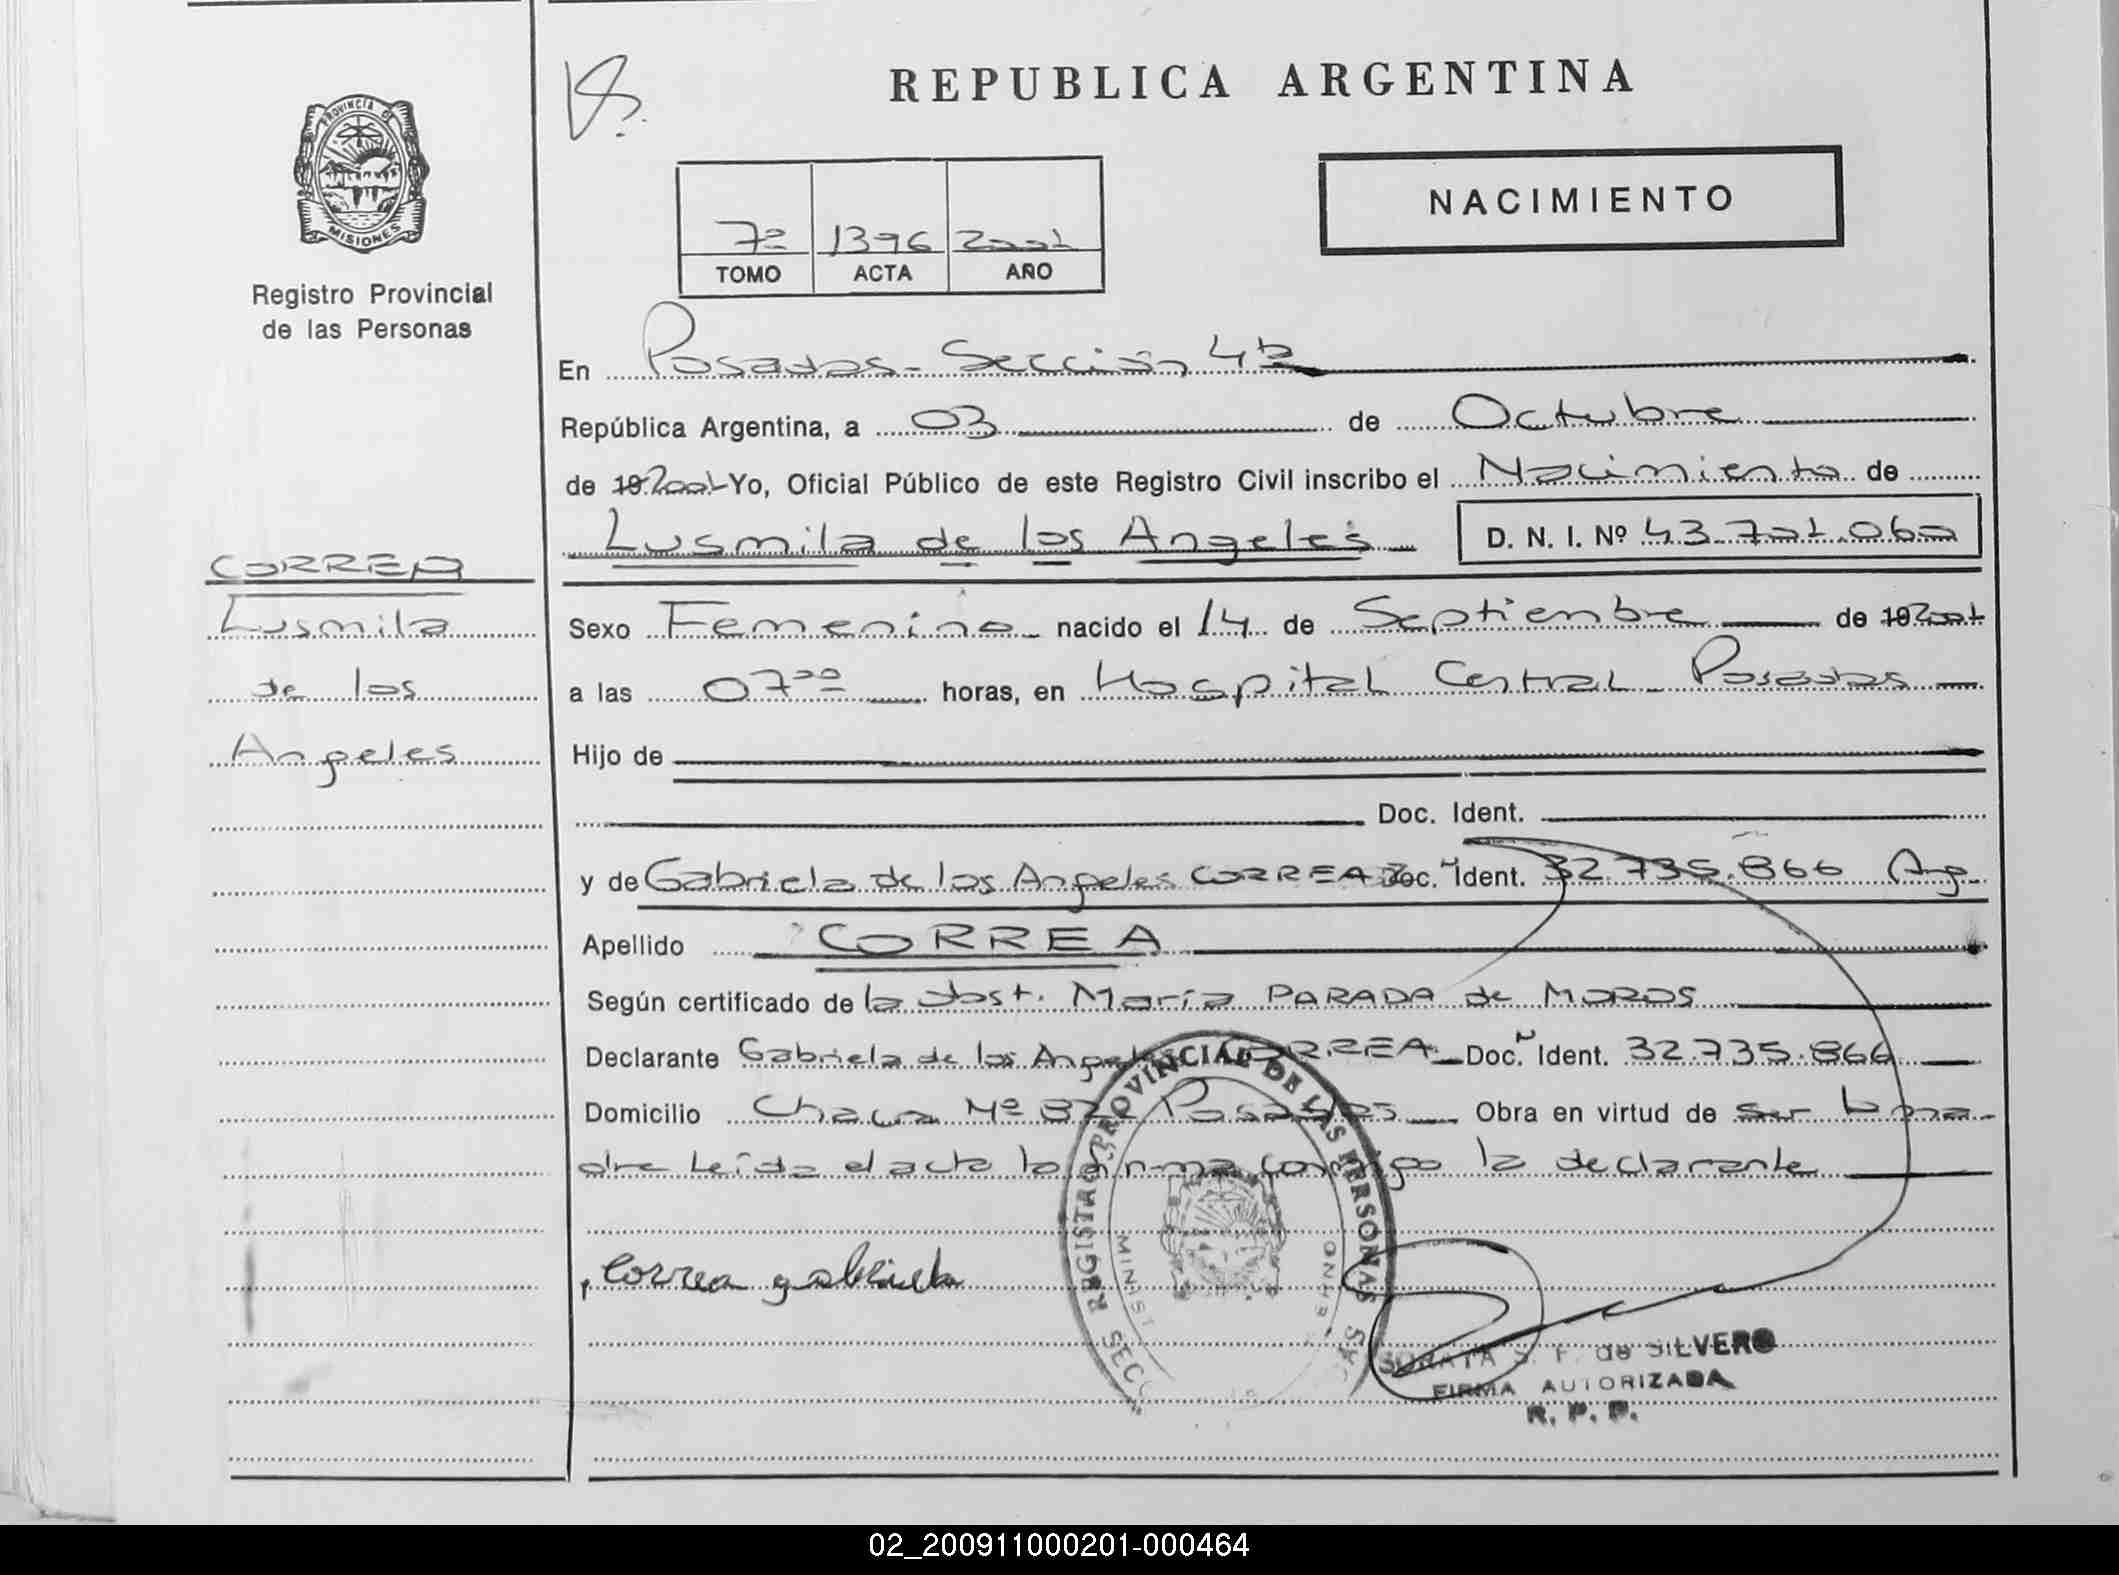 REPUBLICA ARGENTINA
NACIMIENTO
PROVINCIA DE
MISIONES
Registro Provincial
de las Personas
7º 1396 2001
TOMO ACTA AÑO
En Posadas - Sección 4ta
República Argentina, a 03 de Octubre
de 19 2001 Yo, Oficial Público de este Registro Civil inscribo el Nacimiento de
Lusmila de los Angeles D. N. I. Nº 43.701.060
CORREA
Lusmila
de los
Angeles
Sexo Femenino nacido el 14 de Septiembre de 19 2001
a las 07 00 horas, en Hospital Central - Posadas
Hijo de
Doc. Ident.
y de Gabriela de los Angeles CORREA Doc. Ident. 32.735.866 Arg.
Apellido CORREA
Según certificado de la obst. María PARADA de MOROS
Declarante Gabriela de los Angeles CORREA Doc. Ident. 32.735.866
Domicilio Chacra Nº Posadas Obra en virtud de ser la ma-
dre Leída el acta la firma conmigo la declarante
Correa gabriela
REGISTRO PROVINCIAL DE LAS PERSONAS
S. F. de SILVERO
FIRMA AUTORIZADA
R. P. P.
02_200911000201-000464